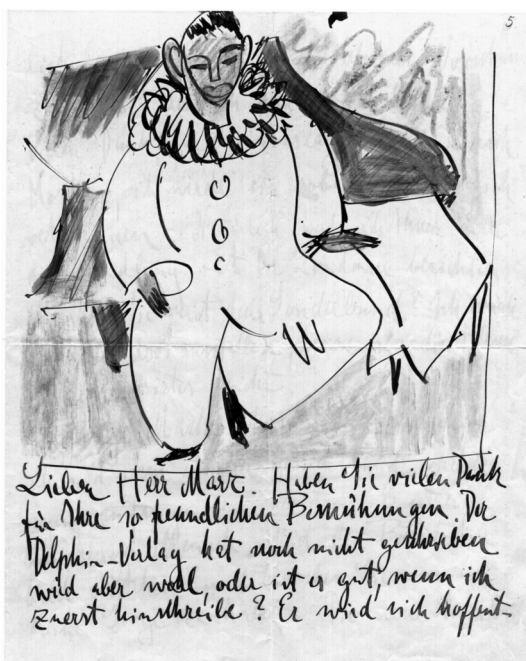 5
Lieber Herr Marc. Haben Sie vielen Dank
für Ihre so freundlichen Bemühungen. Der
Delphin-Verlag hat noch nicht geschrieben
wird aber wohl, oder ist es gut, wenn ich
zuerst hinschreibe? Er wird sich hoffent-